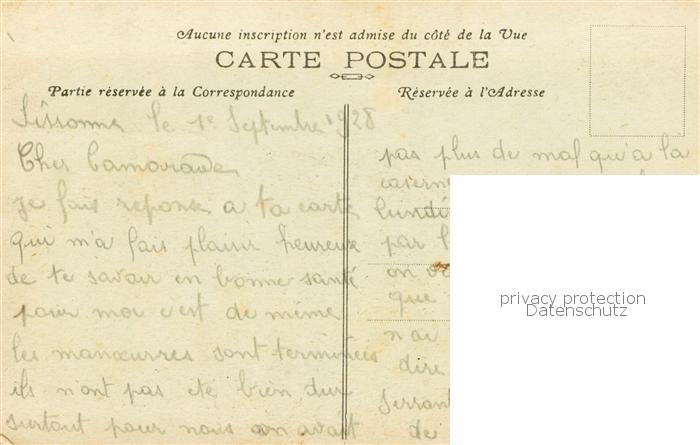 Aucune inscription n'est admise du côté de la Vue
CARTE POSTALE
Partie réservée à la Correspondance
Réservée à l'Adresse
Sissonne le 1e Septembre 1928
Cher Camarade
je fais reponse a ta carte
qui m'a fais plaisir heureux
de te savoir en bonne santé
pour moi c'est de même
les manœuvres sont terminées
ils n'ont pas ete bien dur
surtout pour nous on avait
pas plus de mal qu'a la
lundi
par l
on
que
n'ai
dire
de
privacy protection
Datenschutz